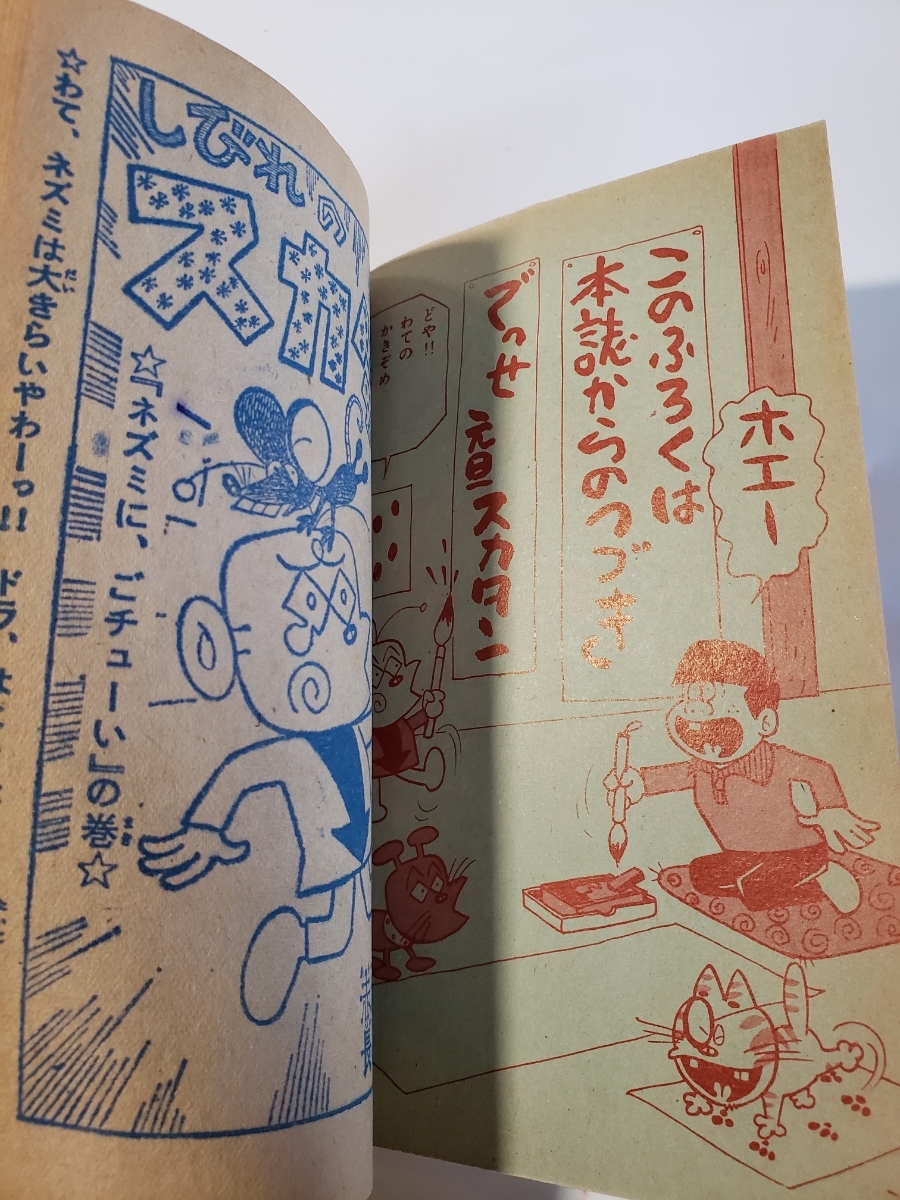 このふろくは
本誌からのつづき
でっせ 元旦スカタン
ホエー
どや!!
わての
かきぞめ
しびれの
スカ
☆『ネズミに、ごチューい』の巻☆
まき
☆わて、ネズミは大きらいやわーっ!! ドラ、
だい